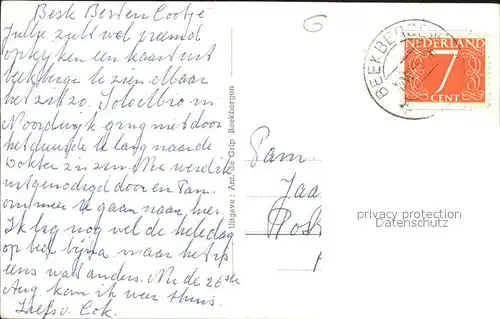 Besk Besten Cootje
Jullie zult wel vreemd
opkijken een kaart uit
Beekbergen te zien. Maar
het zit zo.
Noordwijk ging niet door
het duurde te lang naar de
dokter z'n zin. Nu werd ik
uitgenodigd door en Fam.
om mee te gaan naar hier.
Ik lag nog wel de hele dag
op bed bijna maar het is
eens wat anders. Nu de 26ste
Aug kom ik weer thuis.
Liefs v. Cok.
Uitgave: Ant. de Grip Beekbergen
Fam.
Jaa
Post
BEEKBERGEN
NEDERLAND
7
CENT
privacy protection
Datenschutz